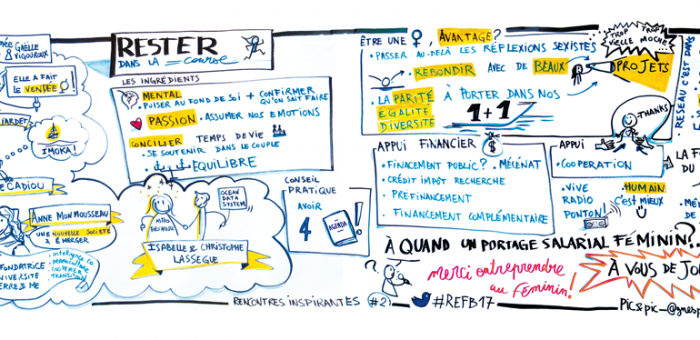 GAËLLE
VIGOUROUX
ELLE A FAIT
LE VENTÉE
IMOKA!
CADIOU
ANNE MONMOUSSEAU
UNE NOUVELLE SOCIÉTÉ
À ÉMERGER
FONDATRICE
RESTER
DANS LA course
LES INGRÉDIENTS
MENTAL
• PUISER AU FOND DE SOI + CONFIRMER
QU'ON SAIT FAIRE
PASSION • ASSUMER NOS EMOTIONS
CONCILIER TEMPS DE VIE
• SE SOUTENIR DANS LE COUPLE
EQUILIBRE
OCEAN
DATA
SYSTEM
ISABELLE & CHRISTOPHE
LASSEGUE
CONSEIL
PRATIQUE
AVOIR
4 AGENDA!
RENCONTRES INSPIRANTES #2
ÊTRE UNE ♀, AVANTAGE?
• PASSER AU-DELÀ LES RÉFLEXIONS SEXISTES
• REBONDIR AVEC DE BEAUX PROJETS
TROP VIELLE
TROP MOCHE
• LA PARITÉ
EGALITÉ
DIVERSITÉ
À PORTER DANS NOS
1+1
THANKS
RESEAU C'EST
APPUI FINANCIER
• FINANCEMENT PUBLIC? • MÉCÉNAT
• CRÉDIT IMPÔT RECHERCHE
• PRÉFINANCEMENT
• FINANCEMENT COMPLÉMENTAIRE
APPUI
• COOPERATION
• VIVE
RADIO
PONTON!
• HUMAIN
C'est MIEUX
À QUAND UN PORTAGE SALARIAL FÉMININ?
merci entreprendre
au féminin!
#REFB17
À VOUS DE
PIC&pic_@